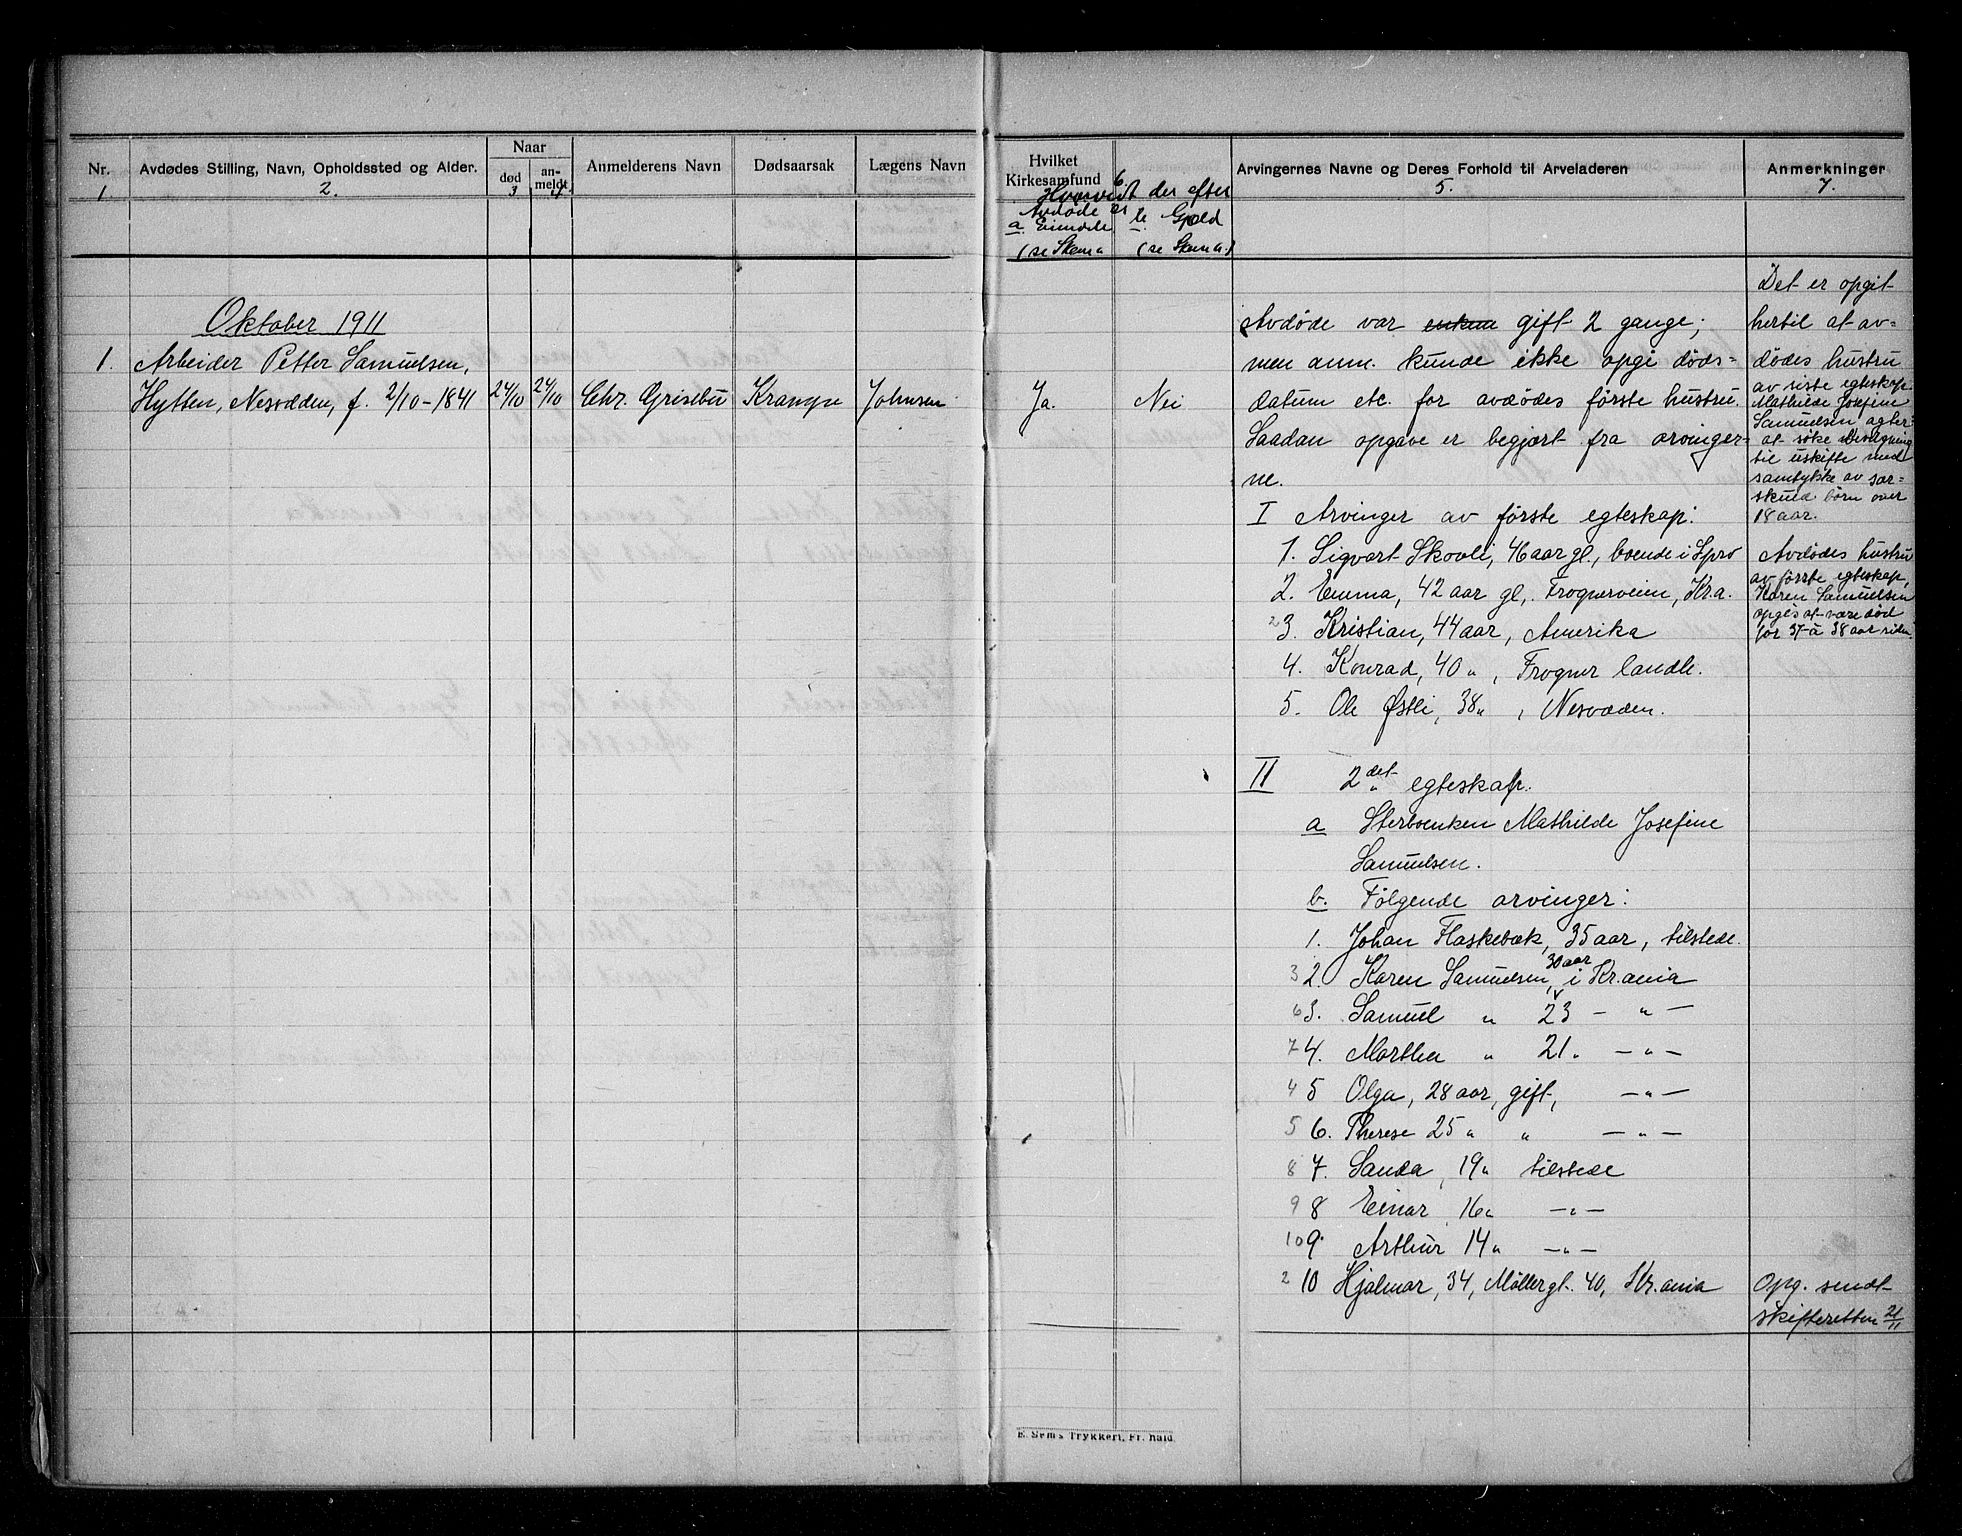 Nr.
1
Avdødes Stilling, Navn, Opholdssted og Alder.
2.
Naar
død
3
an-
meldt.
4.
Anmelderens Navn
Dødsaarsak
Lægens Navn
Hvilket
Kirkesamfund
6
Hvorvidt der efter
Avdøde er
a. Eiendele b. Gjæld
(se Skema (se Skema.)
Arvingernes Navne og Deres Forhold til Arveladeren
5.
Anmerkninger
7.
Oktober 1911
1. Arbeider Petter Samuelsen,
Hytten, Nesodden, f. 2/10-1841 24/10 24/10 Chr. Grisebu Krampe Johnsen
Ja. Nei
Avdøde var enkem gift 2 gange;
men anm. kunde ikke opgi døds-
datum etc. for avdødes første hustru.
Saadan opgave er begjært fra arvinger-
ne.
I Arvinger av første egteskap:
1. Sigvart Skovli, 46 aar gl., boende i Spro
2. Emma, 42 aar gl., Frognerveien, Kr.a.
2 3. Kristian, 44 aar, Amerika
4. Konrad, 40 " , Frogner landh.
5. Ole Østli, 38 " , Nesodden.
II 2det egteskap.
a Sterboenken Mathilde Josefine
Samuelsen.
b. Følgende arvinger:
1. Johan Flaskebæk, 35 aar, tilstede.
30 aar
3 2. Karen Samuelsen, i Kr.ania
6 3. Samuel " 23 - " -
7 4. Marthea " 21 " - " -
4 5 Olga, 28 aar, gift, - " -
5 6. Therese 25 " " - " -
8 7. Sanda, 19 " tilstede
9 8 Einar, 16 " - " -
10 9. Arthur 14 " - " -
2 10 Hjalmar, 34, Møllergt. 40, Kr.ania
Det er opgit
hertil at av-
dødes hustru
av siste egteskap
Mathilde Josefine
Samuelsen agter
at søke bevilgning
til uskifte med
samtykke av sær-
skuld børn over
18 aar.
Avdødes hustru
av første egteskap,
Karen Samuelsen
opgis at være død
for 37 à 38 aar siden.
Opg. sendt
skifteretten 21/11
E. Sem's Trykkeri, Fr.hald.